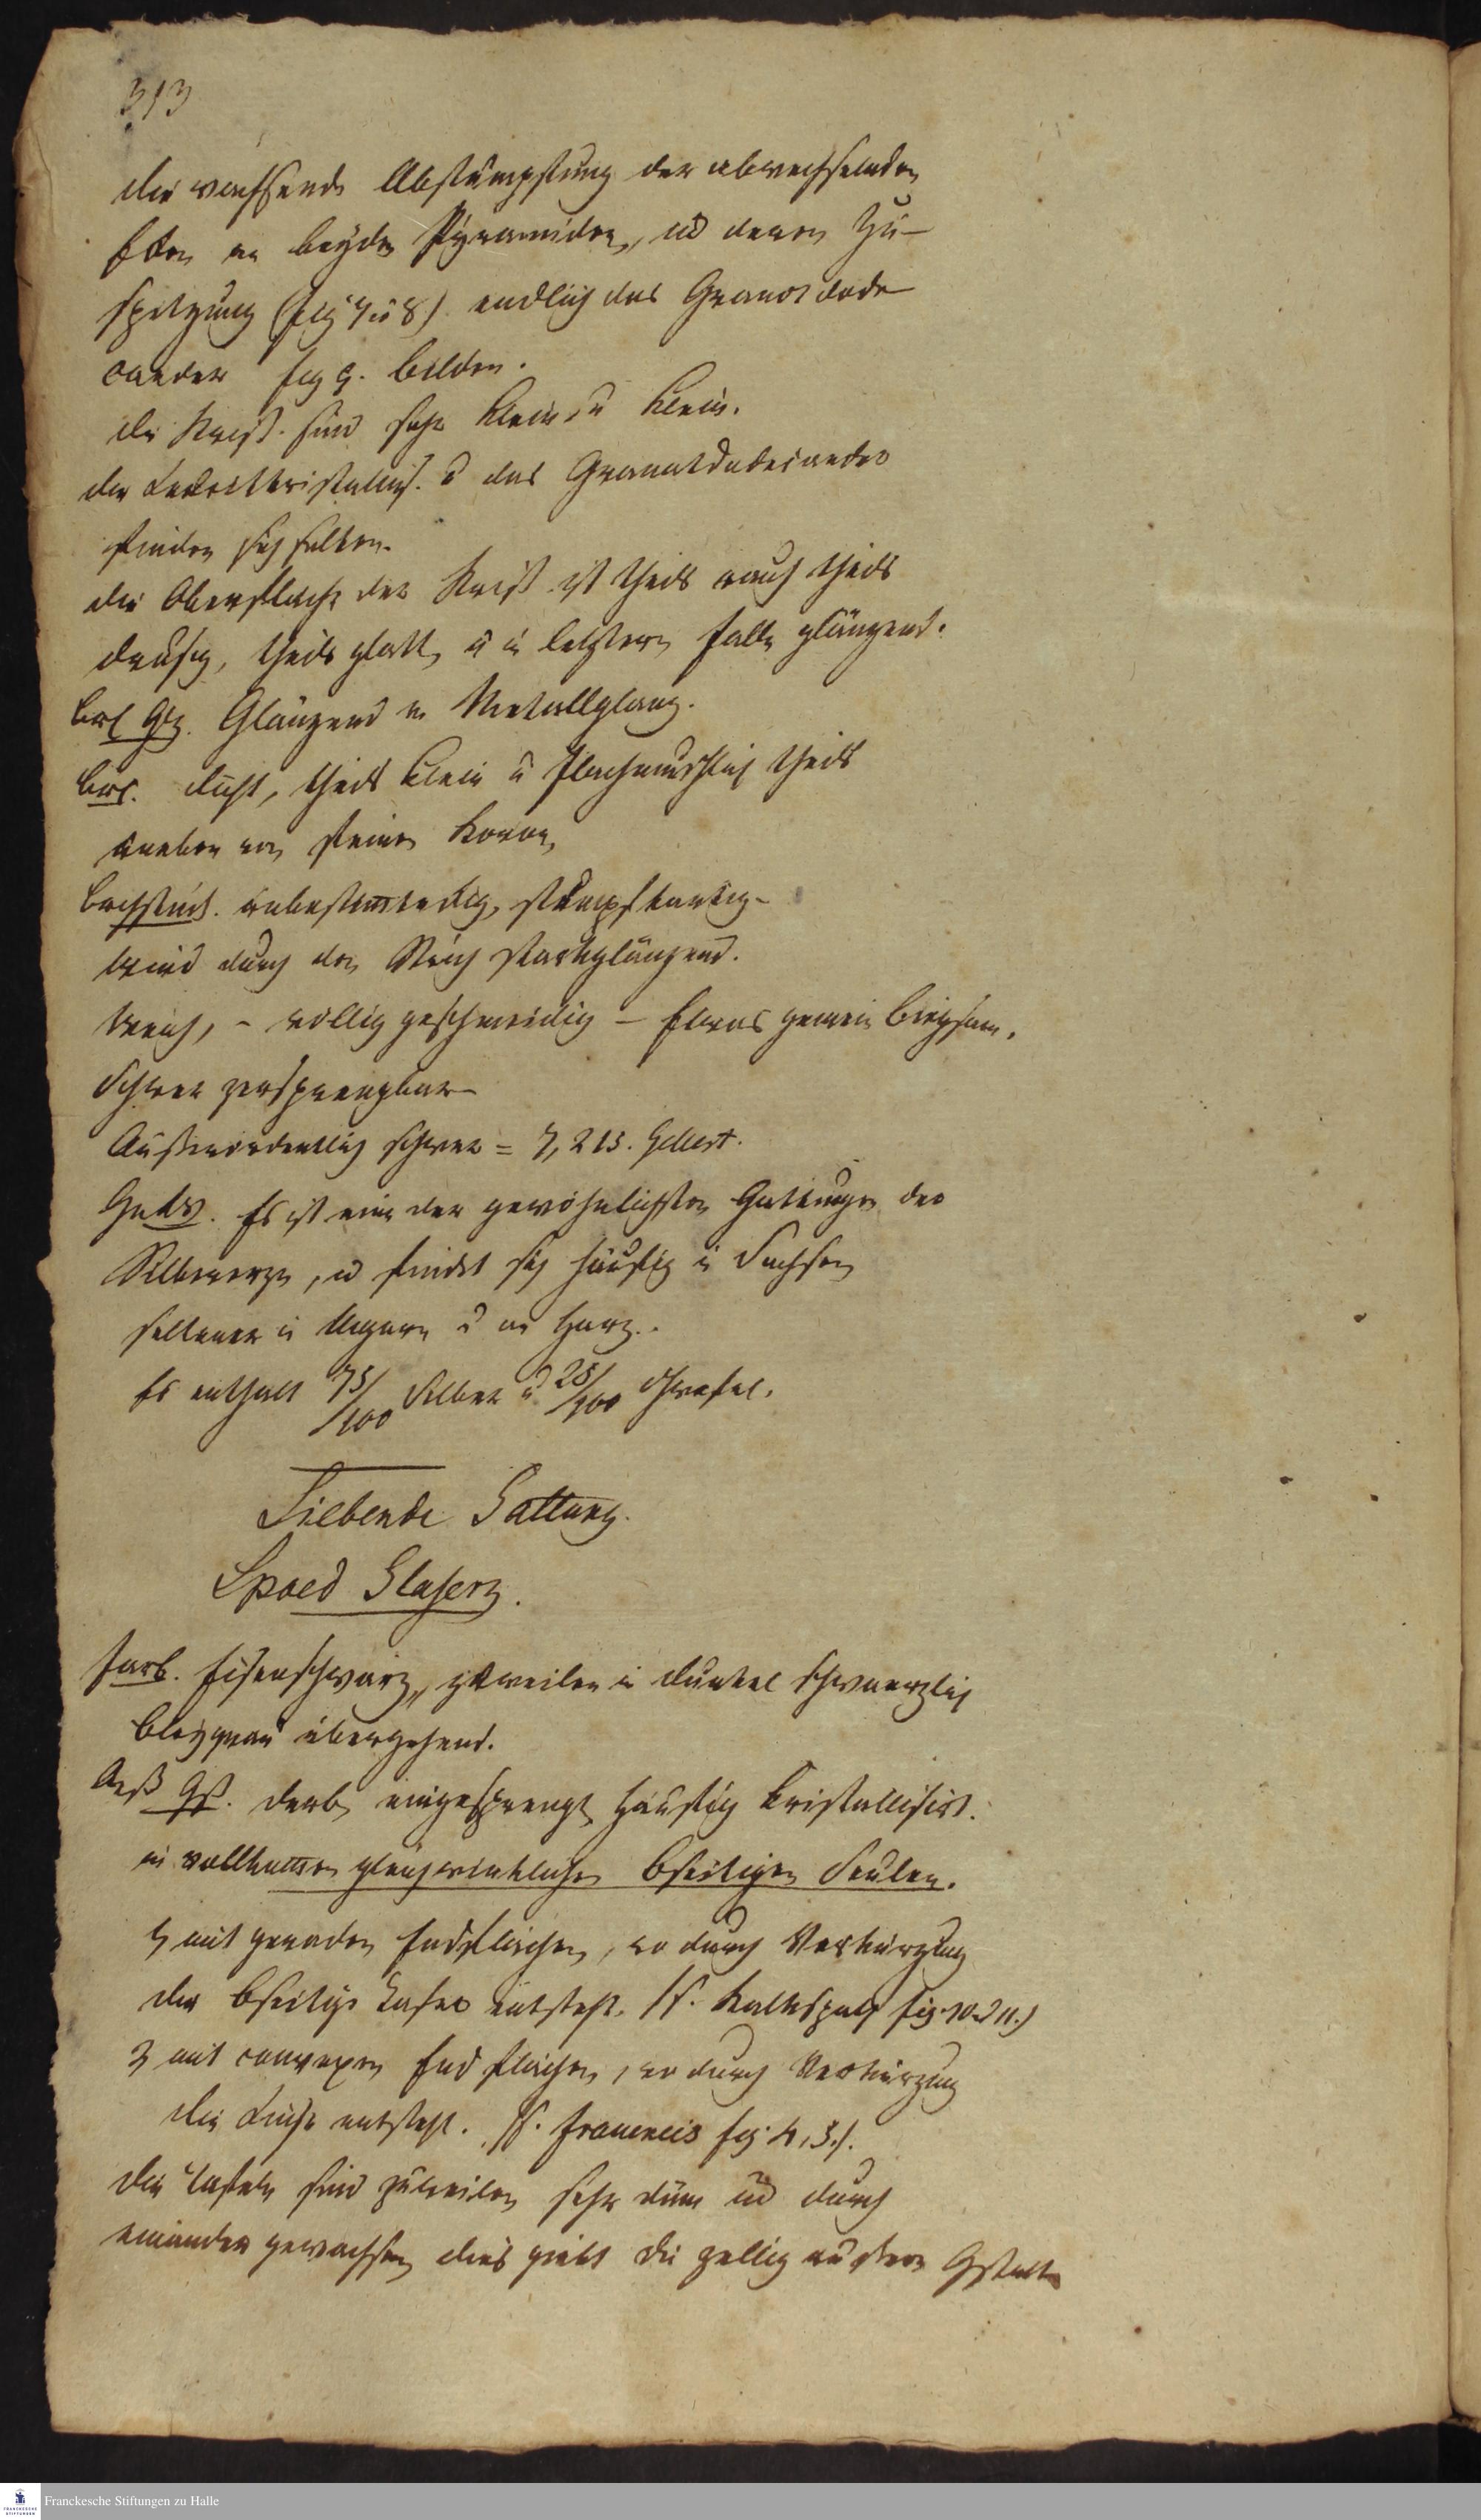 313
die wachsende Abstumpfung der abwechselnden
Eken an beyden Pyramiden, ud deren Zu-
spitzung (fig 7 u 8) endlich das Granatdode-
caeder fig 9. bilden.
die Krist. sind sehr klein u klein.
die Leucitkristallis. u das Granatdodecaeder
finden sich selten.
die Oberfläche der Krist ist theils rauh theils
drusig, theils glatt, u in leztern Falle glänzend.
brs Glz. Glänzend v Metallglanz.
brs. dicht, theils klein u flachmuschlich theils
uneben von feinen Korn,
bruchstück. unbestimtekig, stumpfkantig-
wird durch den Strich starkglänzend.
Weich, - völlig geschmeidig - Etwas gemein biegsam.
Schwer zersprengbar
Außerordentlich schwer = 7,215. Gellert.
Gebr. Es ist eine der gewöhnlichsten Gattungen der
Silbererze, u findet sich häufig in Sachsen
seltener in Ungarn u am Harz.
Es enthält 75/100 Silber u 25/100 Schwefel.
Siebende Gattung.
Sproed Glaserz.
Farb. Eisenschwarz, zuweilen in dunkel schwaerzlich
bleygrau übergehend.
Aeß Gst. derb, eingesprengt häufig kristallisirt.
in vollkomen gleichwinklichen 6seitigen Seulen.
η mit geraden Endflächen, wo durch Verkürzung
die 6seitige Tafel entsteht. (S. Kalkspath fig. 10 u 11.)
ʒ mit convexen Endflächen, wo durch Verkürzung
die Linse entsteht. (S. Fraueneis fig. 4, 5.).
die Tafeln sind zuweilen sehr dünn ud durch
einander gewachsen dies giebt die zellig äußere Gstalt
Franckesche Stiftungen zu Halle